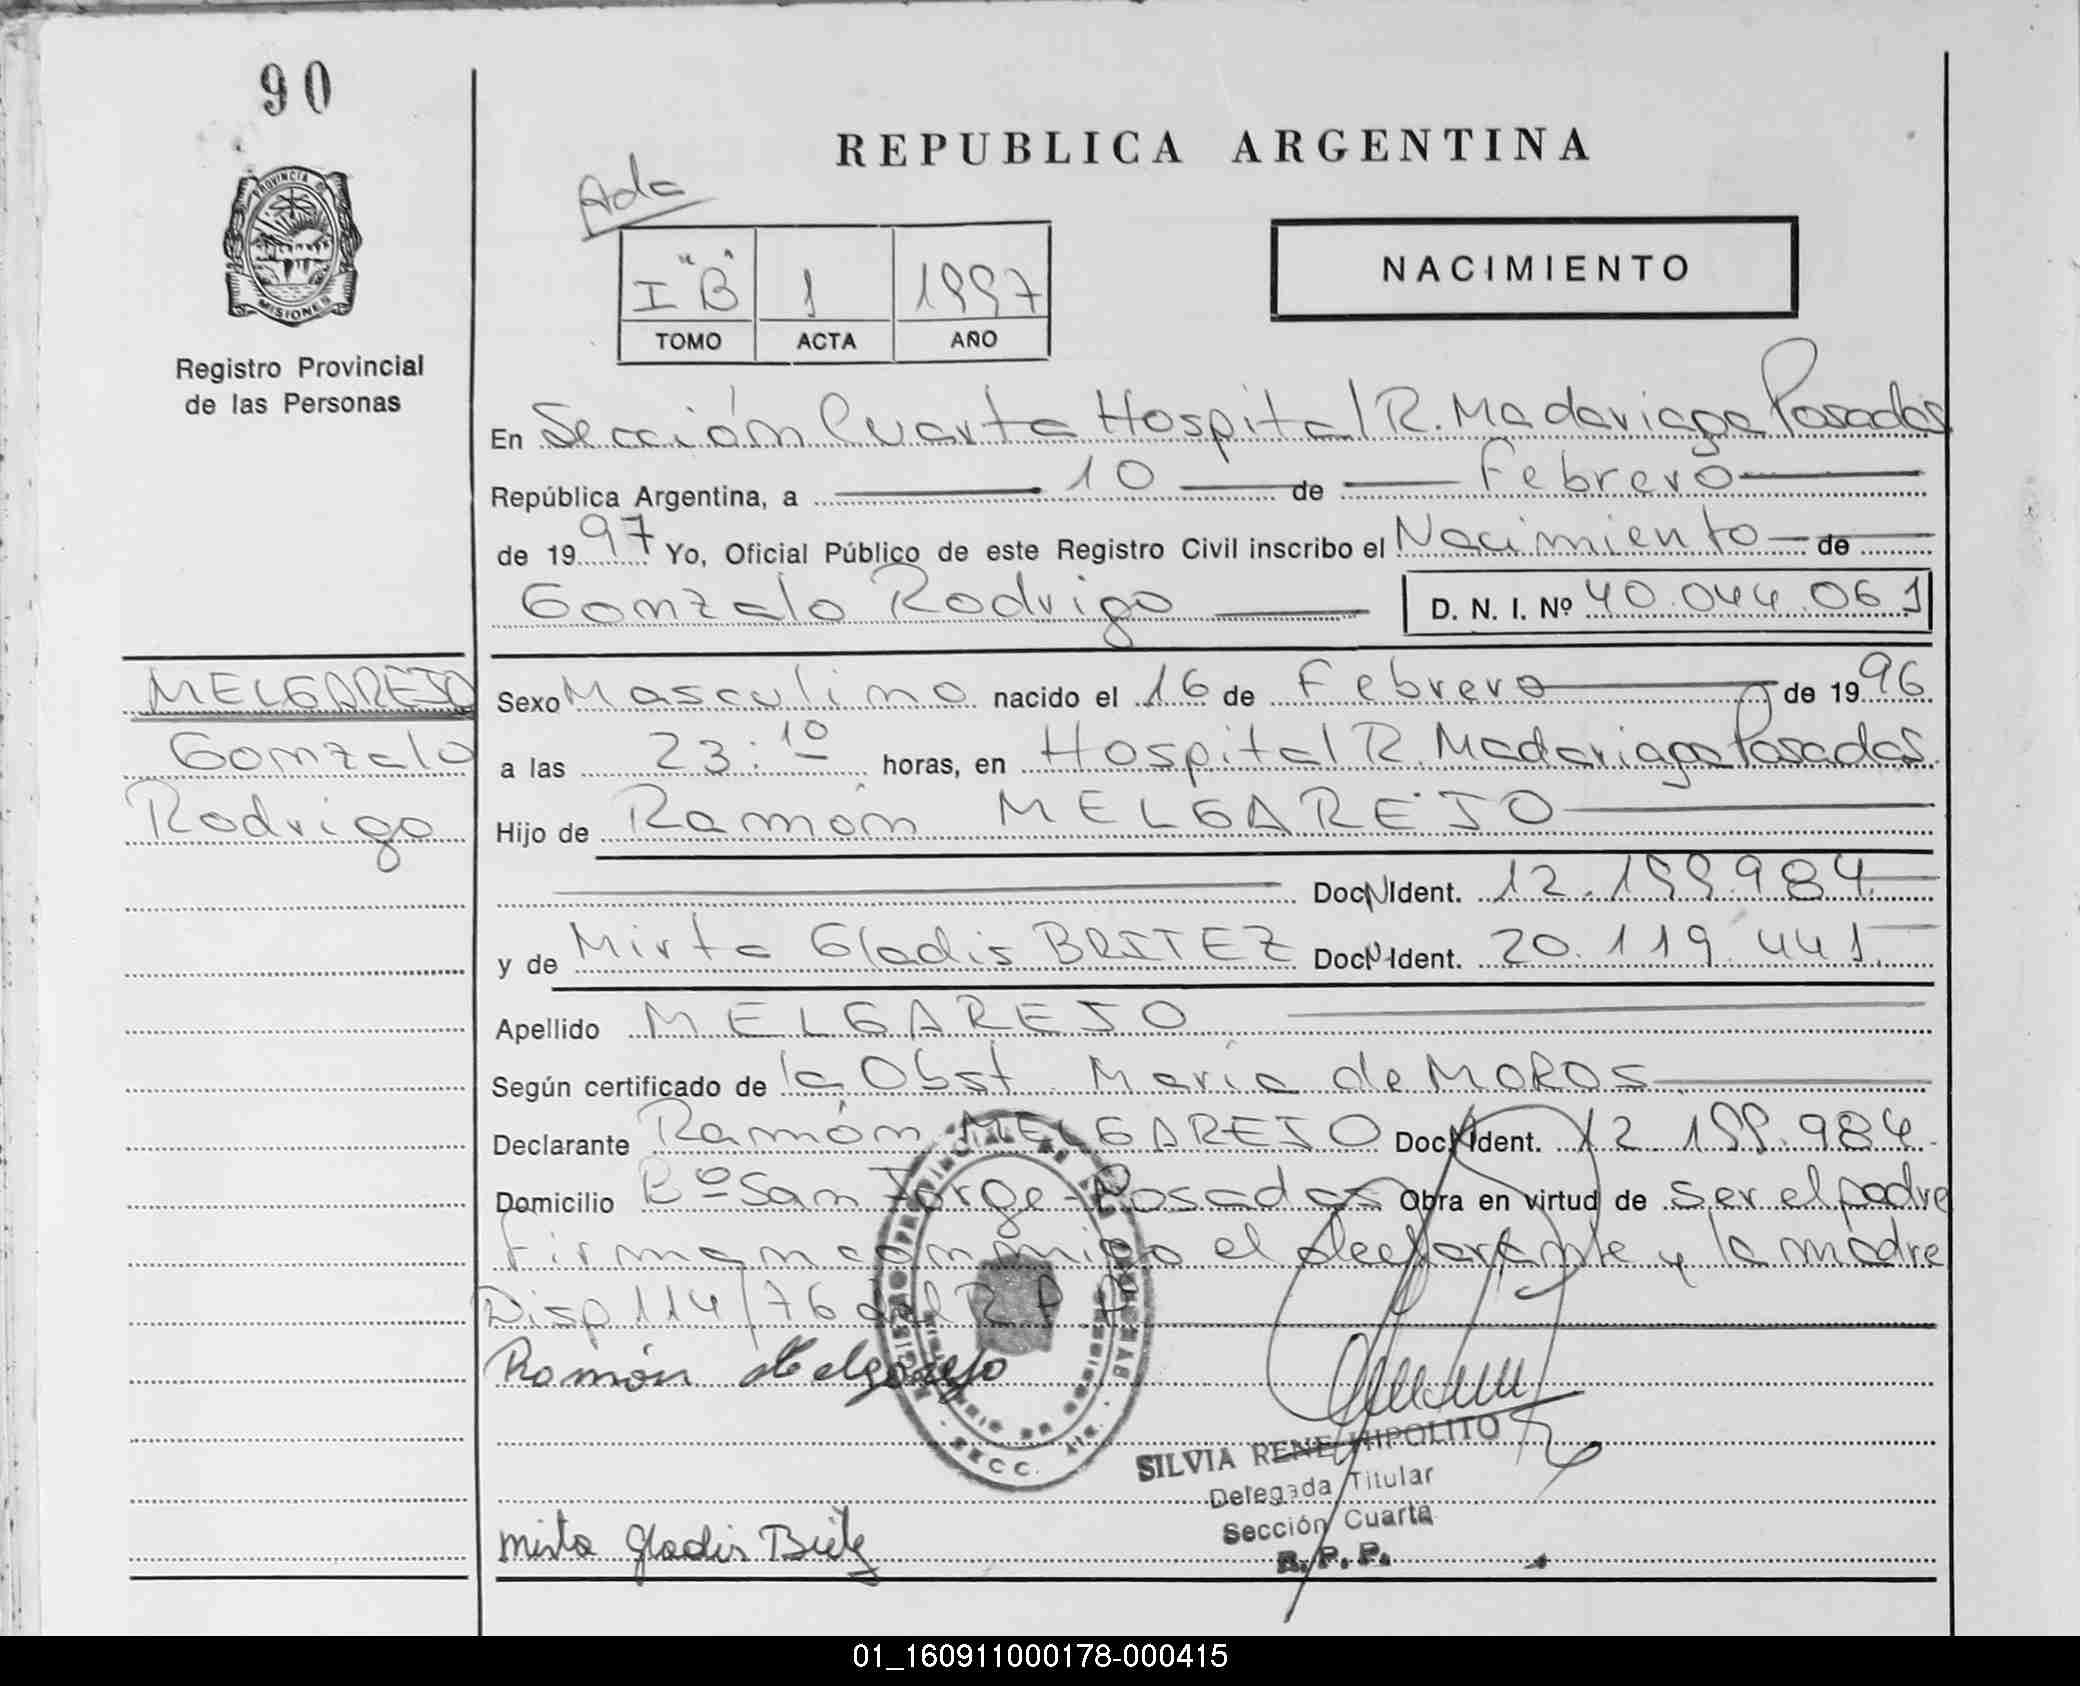 90
REPUBLICA ARGENTINA
Ada
I "B" 1 1997
TOMO ACTA AÑO
NACIMIENTO
PROVINCIA DE
MISIONES
Registro Provincial
de las Personas
En Sección Cuarta Hospital R. Madariaga Posadas
República Argentina, a 10 de Febrero
de 1997 Yo, Oficial Público de este Registro Civil inscribo el Nacimiento de
Gonzalo Rodrigo D. N. I. Nº 40.044.061
MELGAREJO
Gonzalo
Rodrigo
Sexo Masculino nacido el 16 de Febrero de 1996
a las 23:10 horas, en Hospital R. Madariaga Posadas.
Hijo de Ramón MELGAREJO
Doc. N Ident. 12.199.984
y de Mirta Gladis BRITEZ Doc. N Ident. 20.119.441
Apellido MELGAREJO
Según certificado de la Obst. María de MOROS
Declarante Ramón MELGAREJO Doc. N Ident. 12.199.984.
Domicilio Bº San Jorge - Posadas Obra en virtud de ser el padre
firman conmigo el declarante y la madre
Disp 114/76 del R.P.P.
Ramón Melgarejo
SILVIA RENE HIPOLITO
Delegada Titular
Sección Cuarta
R. P. P.
Mirta Gladis Britez
01_160911000178-000415